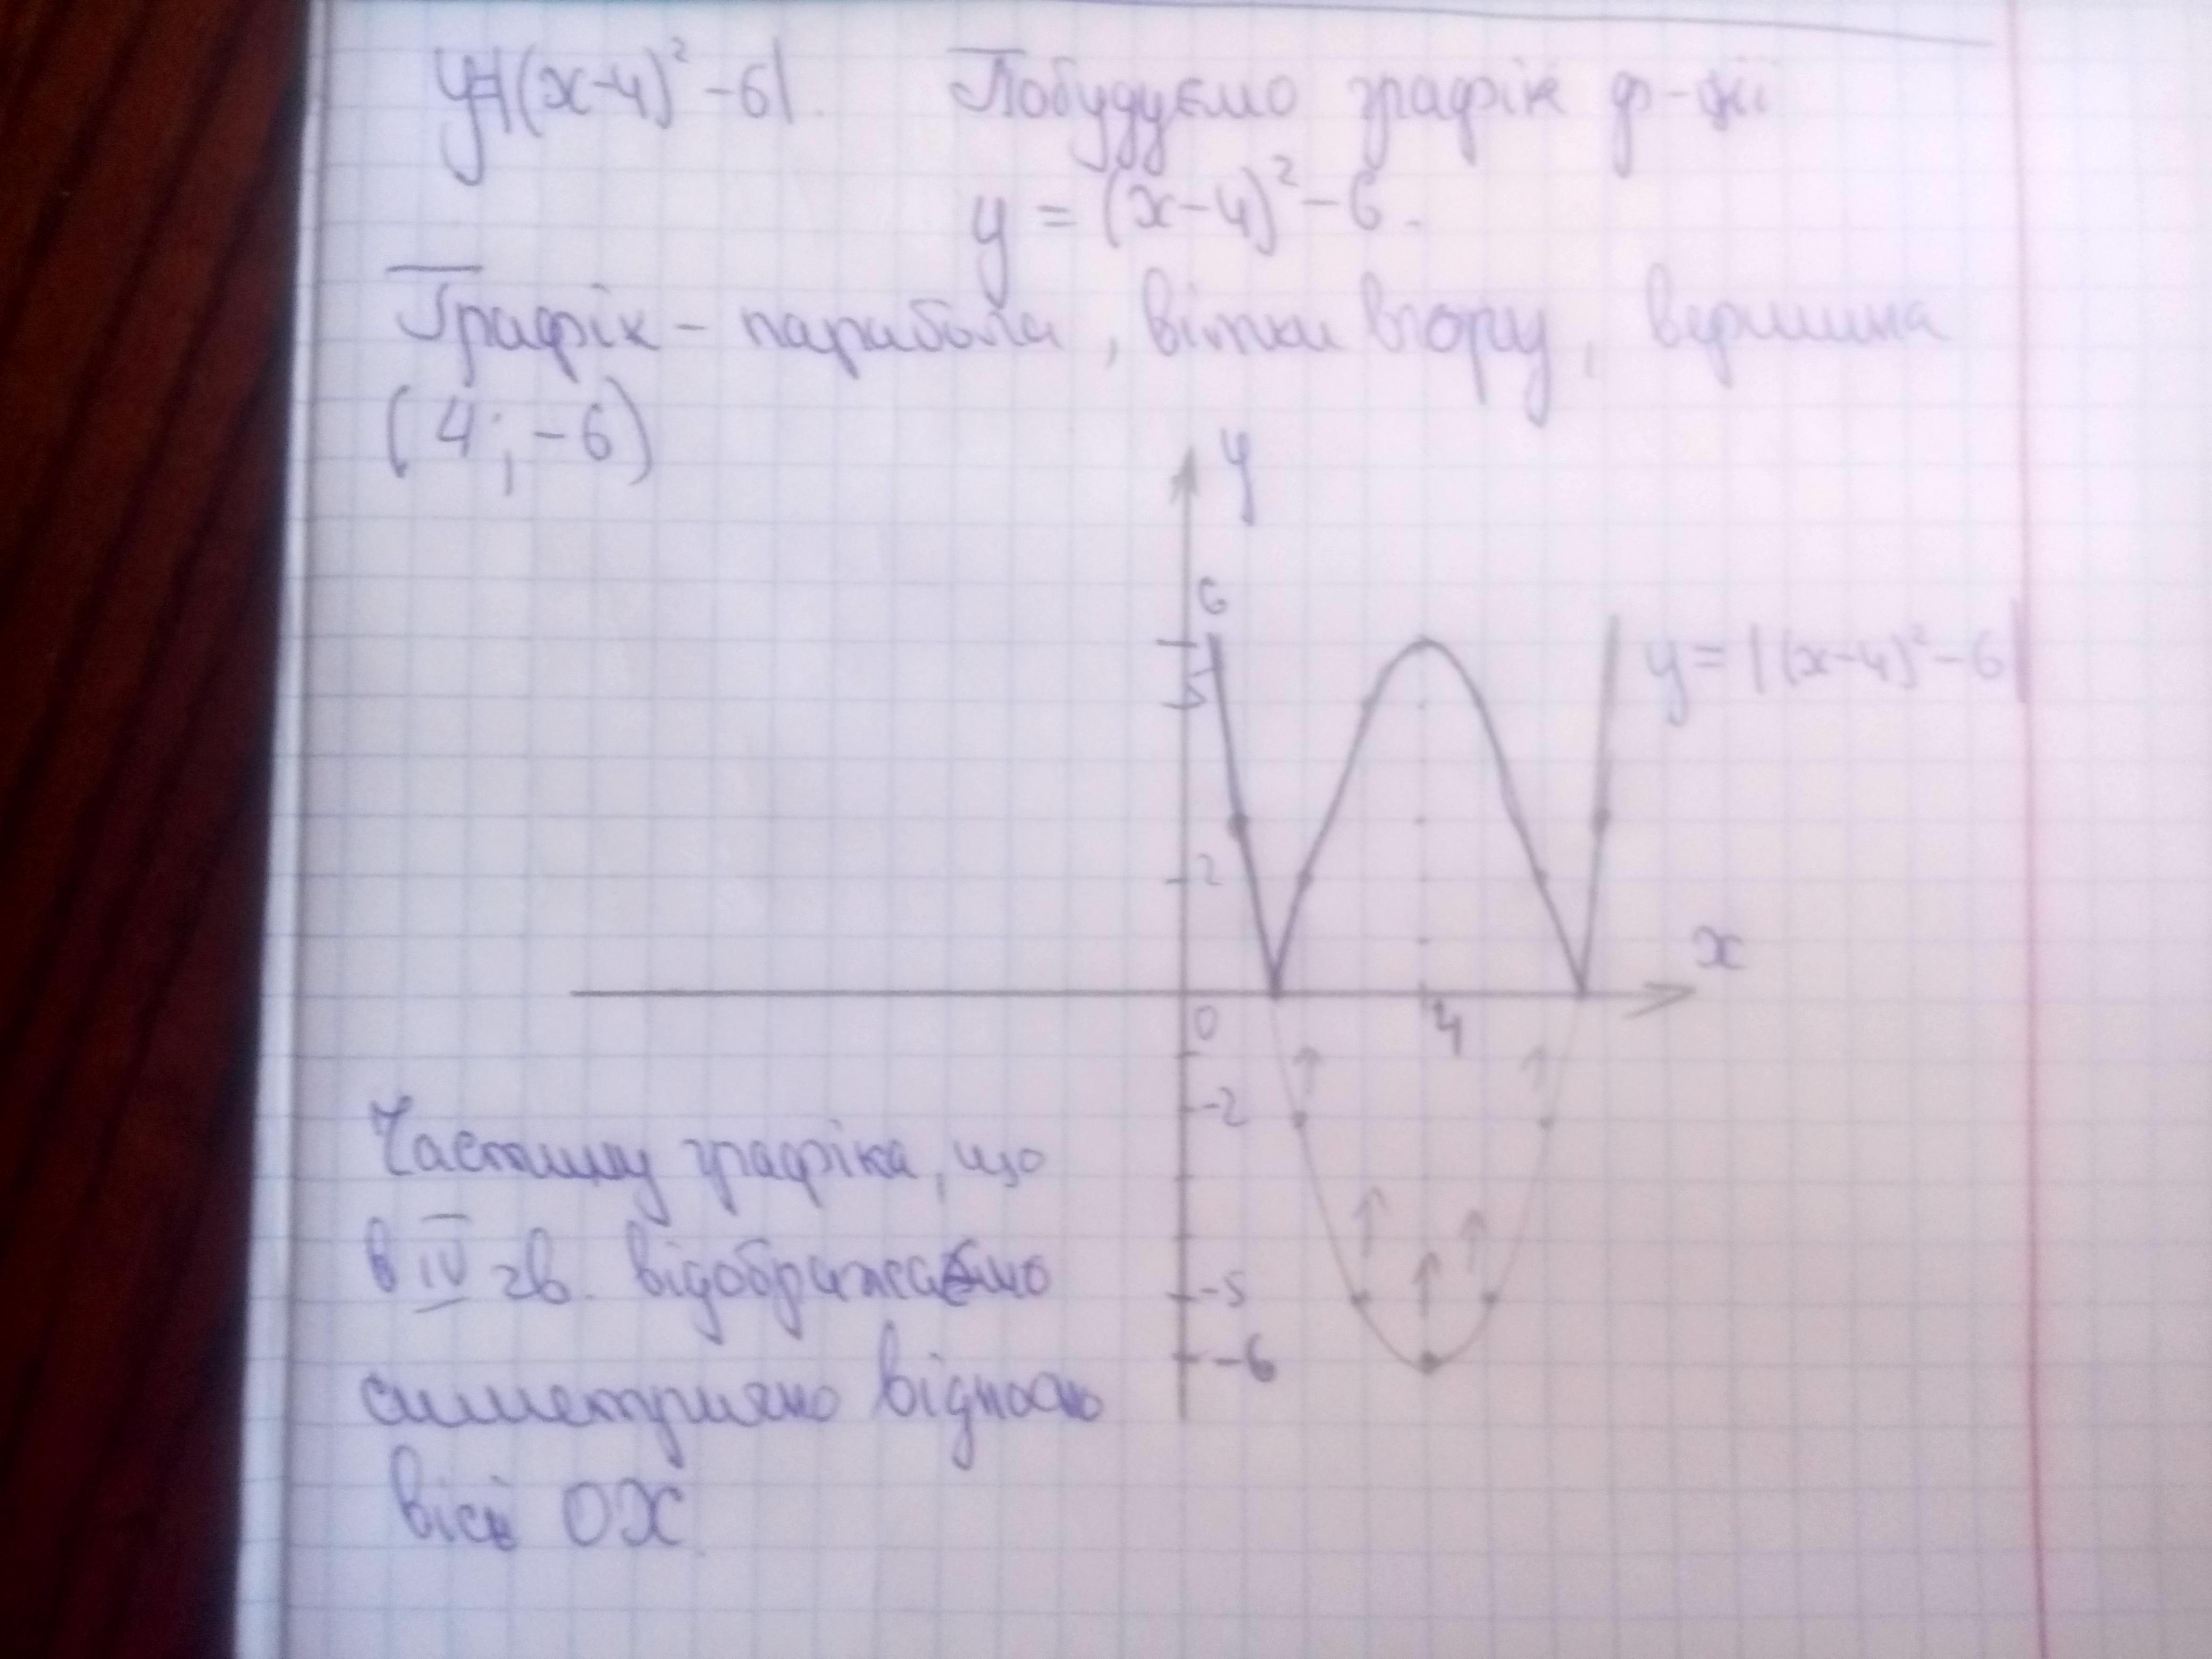 y=|(x-4)²-6|. Побудуємо графік ф-ції
y = (x-4)²-6.
Графік - парабола, вітки вгору, вершина
(4; -6)
y
6
5
y=|(x-4)²-6|
2
x
0
4
-2
Частину графіка, що
в IV чв. відображаємо
-5
-6
симетрично відносно
вісі OX.